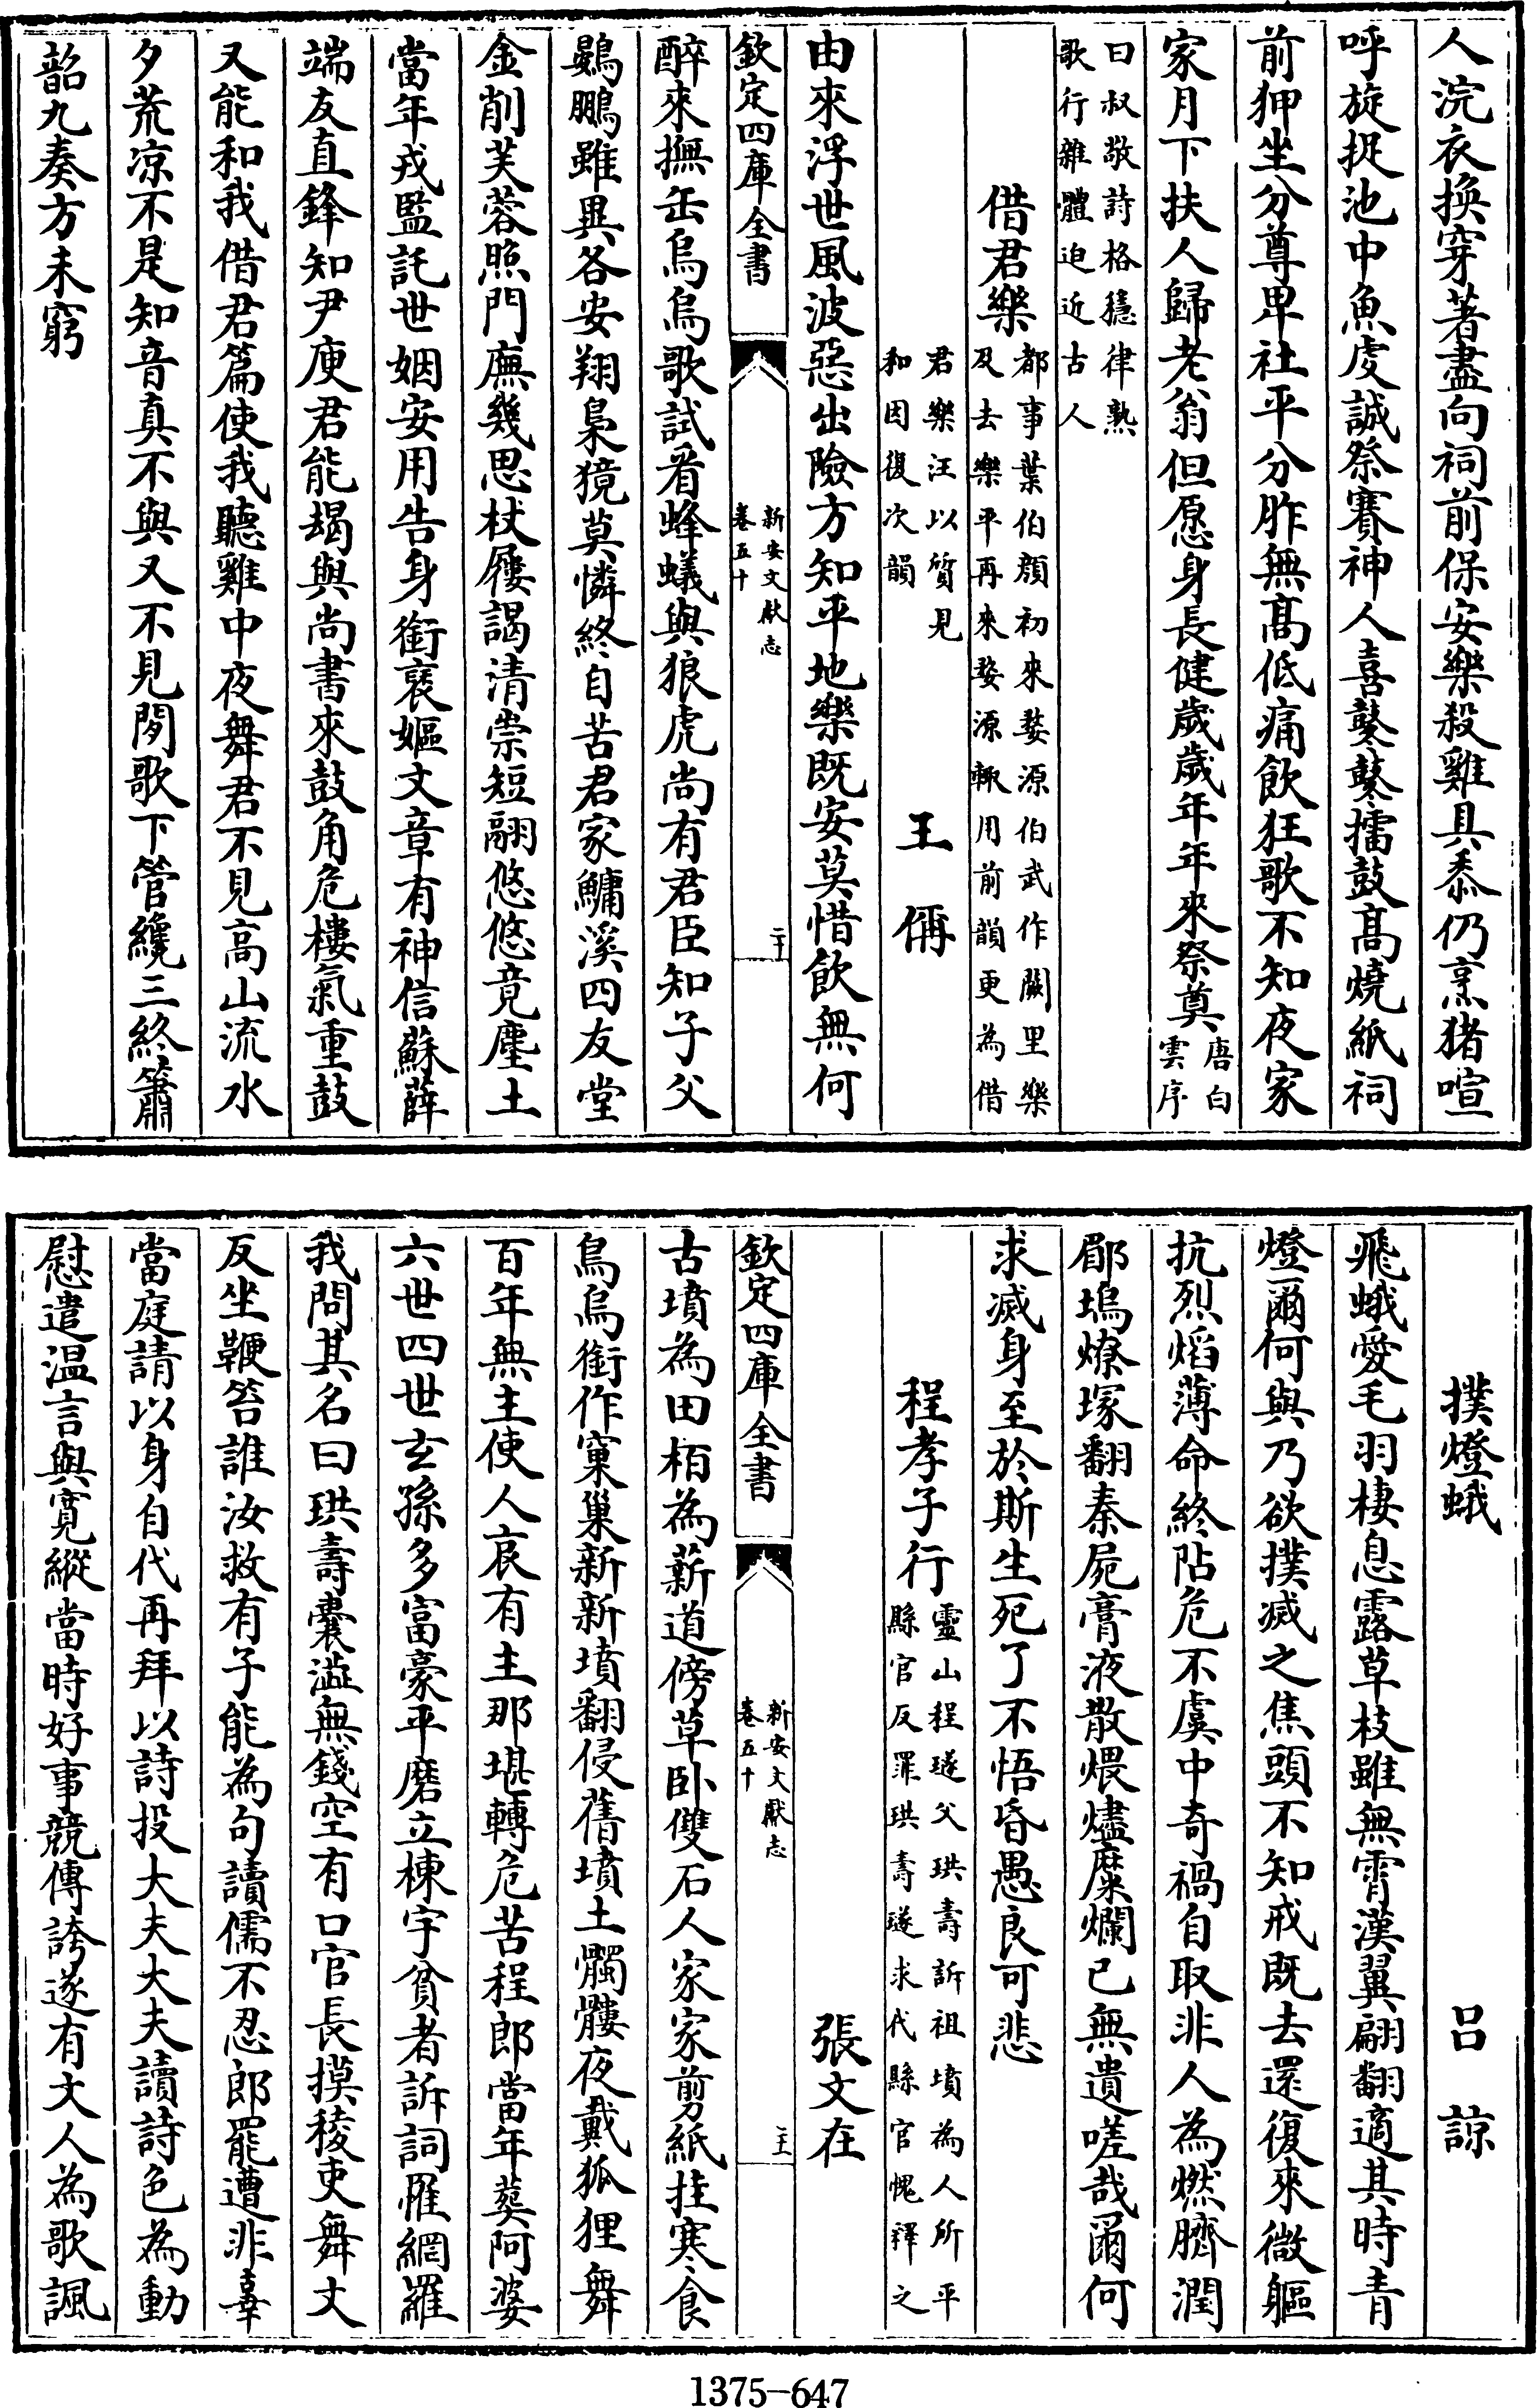 人浣衣換穿著盡向祠前保安樂殺雞具黍仍烹猪喧
呼旋捉池中魚虔誠祭賽神人喜鼕鼕擂鼓髙燒紙祠
前狎坐分尊卑社平分胙無髙低痛飲狂歌不知夜家
家月下扶人歸老翁但愿身長健歲歲年年來祭奠唐白
雲序
曰叔敬詩格穩律熟
歌行雜體迫近古人
借君樂都事葉伯顔初來婺源伯武作闕里樂
及去樂平再來婺源輒用前韻更為借
君樂汪以質見
和因復次韻
王偁
由來浮世風波惡出險方知平地樂既安莫惜飲無何
欽定四庫全書
新安文獻志
卷五十
二十
醉來撫缶烏烏歌試看蜂蟻與狼虎尚有君臣知子父
鷃鵬雖異各安翔梟獍莫憐終自苦君家鱅溪四友堂
金削芙蓉照門廡幾思杖屨謁清崇短翮悠悠竟塵土
當年戎監託世姻安用告身銜褒嫗文章有神信蘇薛
端友直鋒知尹庾君能朅與尚書來鼓角危樓氣重鼓
又能和我借君篇使我聽雞中夜舞君不見高山流水
夕荒凉不是知音真不與又不見閔歌下管纔三終簫
韶九奏方未窮
撲燈蛾
吕諒
飛蛾愛毛羽棲息露草枝雖無霄漢翼翩翻適其時青
燈爾何與乃欲撲滅之焦頭不知戒既去還復來微軀
抗烈熖薄命終阽危不虞中奇禍自取非人為燃臍潤
郿塢燎塚翻秦屍膏液散煨燼糜爛已無遺嗟哉爾何
求滅身至於斯生死了不悟昏愚良可悲
程孝子行靈山程璲父珙壽訴祖墳為人所平
縣官反罪珙壽璲求代縣官愧釋之
張文在
欽定四庫全書
新安文獻志
卷五十
二十一
古墳為田栢為薪道傍草卧雙石人家家剪紙挂寒食
烏烏銜作窠巢新新墳翻侵舊墳土髑髏夜戴狐狸舞
百年無主使人哀有主那堪轉危苦程郎當年葬阿婆
六世四世玄孫多富豪平磨立棟宇貧者訴詞罹網羅
我問其名曰珙壽囊澁無錢空有口官長摸稜吏舞文
反坐鞭笞誰汝救有子能為句讀儒不忍郎罷遭非辜
當庭請以身自代再拜以詩投大夫大夫讀詩色為動
慰遣温言與寛縱當時好事競傳誇遂有文人為歌諷
1375-647